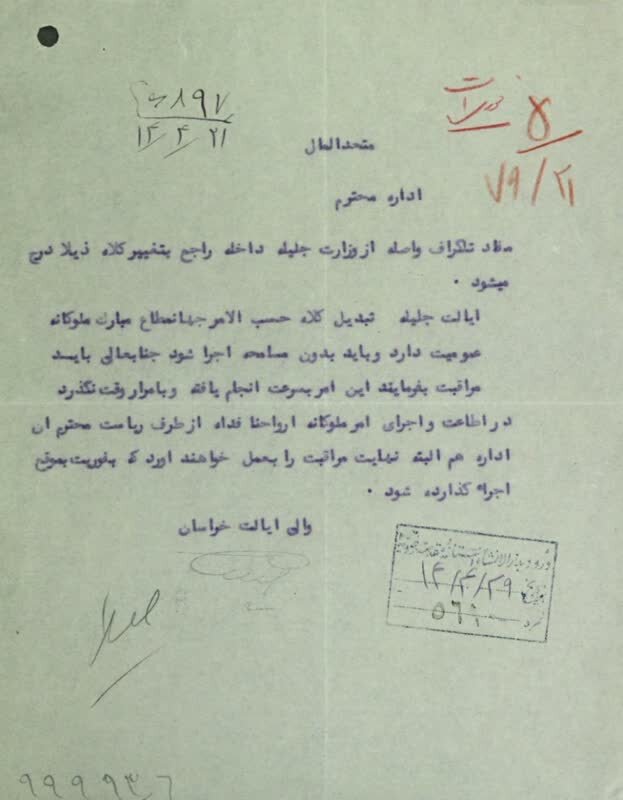 ۸۹۷
۱۴/۴/۲۱
۵
۷۹/۲۱
متحدالمال
اداره محترم
مفاد تلگراف واصله از وزارت جلیله داخله راجع بتغییر کلاه ذیلا درج
میشود .
ایالت جلیله تبدیل کلاه حسب الامر جهانمطاع مبارك ملوکانه
عمومیت دارد و باید بدون مسامحه اجرا شود جنابعالی بایسد
مراقبت بفرمایند این امر بسرعت انجام یافته و بامرار وقت نگذرد
در اطاعت و اجرای امر ملوکانه ارواحنا فداه از طرف ریاست محترم ان
اداره هم البته نهایت مراقبت را بعمل خواهند اورد که بفوریت بموقع
اجراء گذارده شود .
والی ایالت خراسان
ورود بدارالانشاء آستانه مقدسه رضوی
۱۴/۴/۲۹
۵۶۱
۹۹۹۹۳۶